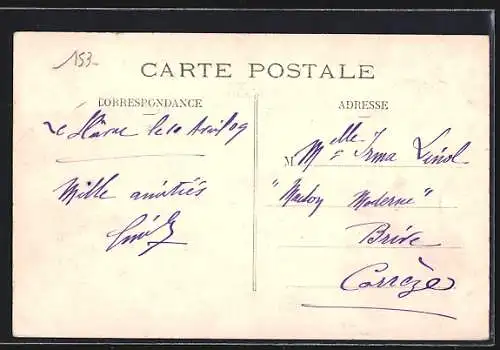 153
CARTE POSTALE
CORRESPONDANCE
ADRESSE
Le Hâvre le 10 Avril 09
Mille amitiés
M Melle Irma
"Maison Moderne"
Brive
Corrèze